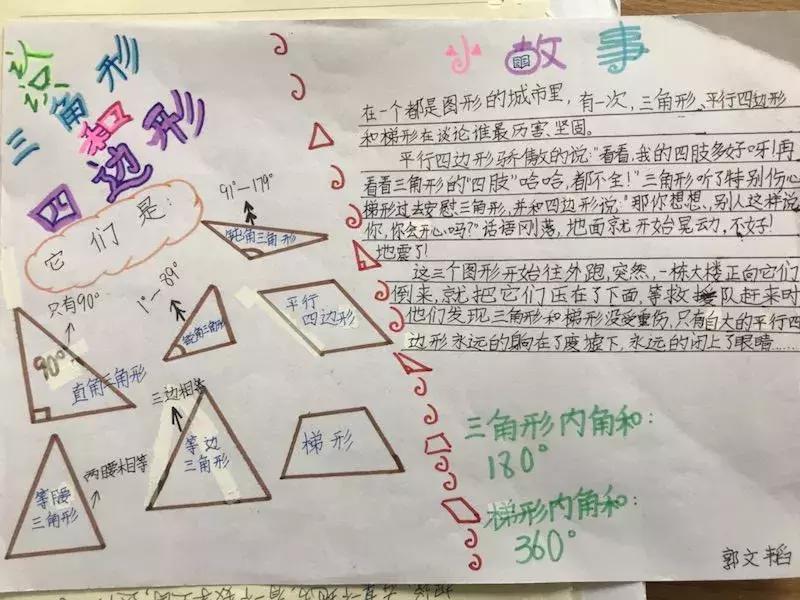 三角形
和
四边形
它们是：
91°—179°
钝角三角形
只有90°
90°
直角三角形
1°—89°
锐角三角形
平行
四边形
三边相等
等边
三角形
梯形
两腰相等
等腰
三角形
小故事
在一个都是图形的城市里，有一次，三角形、平行四边形
和梯形在谈论谁最厉害、坚固。
平行四边形骄傲的说：“看看，我的四肢多好呀！再
看看三角形的“四肢”哈哈，都不全！”三角形听了特别伤心
梯形过去安慰三角形，并和四边形说：“那你想想，别人这样说
你，你会开心吗？”话语刚落，地面就开始晃动，不好！
地震了！
这三个图形开始往外跑，突然，一栋大楼正向它们
倒来，就把它们压在了下面，等救援队赶来时
他们发现三角形和梯形没受重伤，只有自大的平行四
边形永远的躺在了废墟下，永远的闭上了眼睛……
三角形内角和：
180°
梯形内角和：
360°
郭文韬